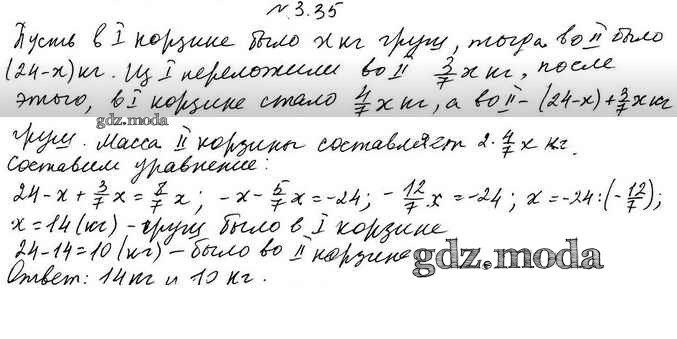 №3.35
Пусть в I корзине было x кг груш, тогда во II было
(24-x) кг. Из I переложили во II 3/7 x кг, после
этого, в I корзине стало 4/7 x кг, а во II - (24-x)+3/7 x кг
gdz.moda
груш. Масса II корзины составляет 2·4/7 x кг.
Составим уравнение:
24-x+3/7 x=8/7 x; -x-5/7 x=-24; -12/7 x=-24; x=-24:(-12/7);
x=14(кг) - груш было в I корзине
24-14=10(кг) - было во II корзине
gdz.moda
Ответ: 14кг и 10 кг.